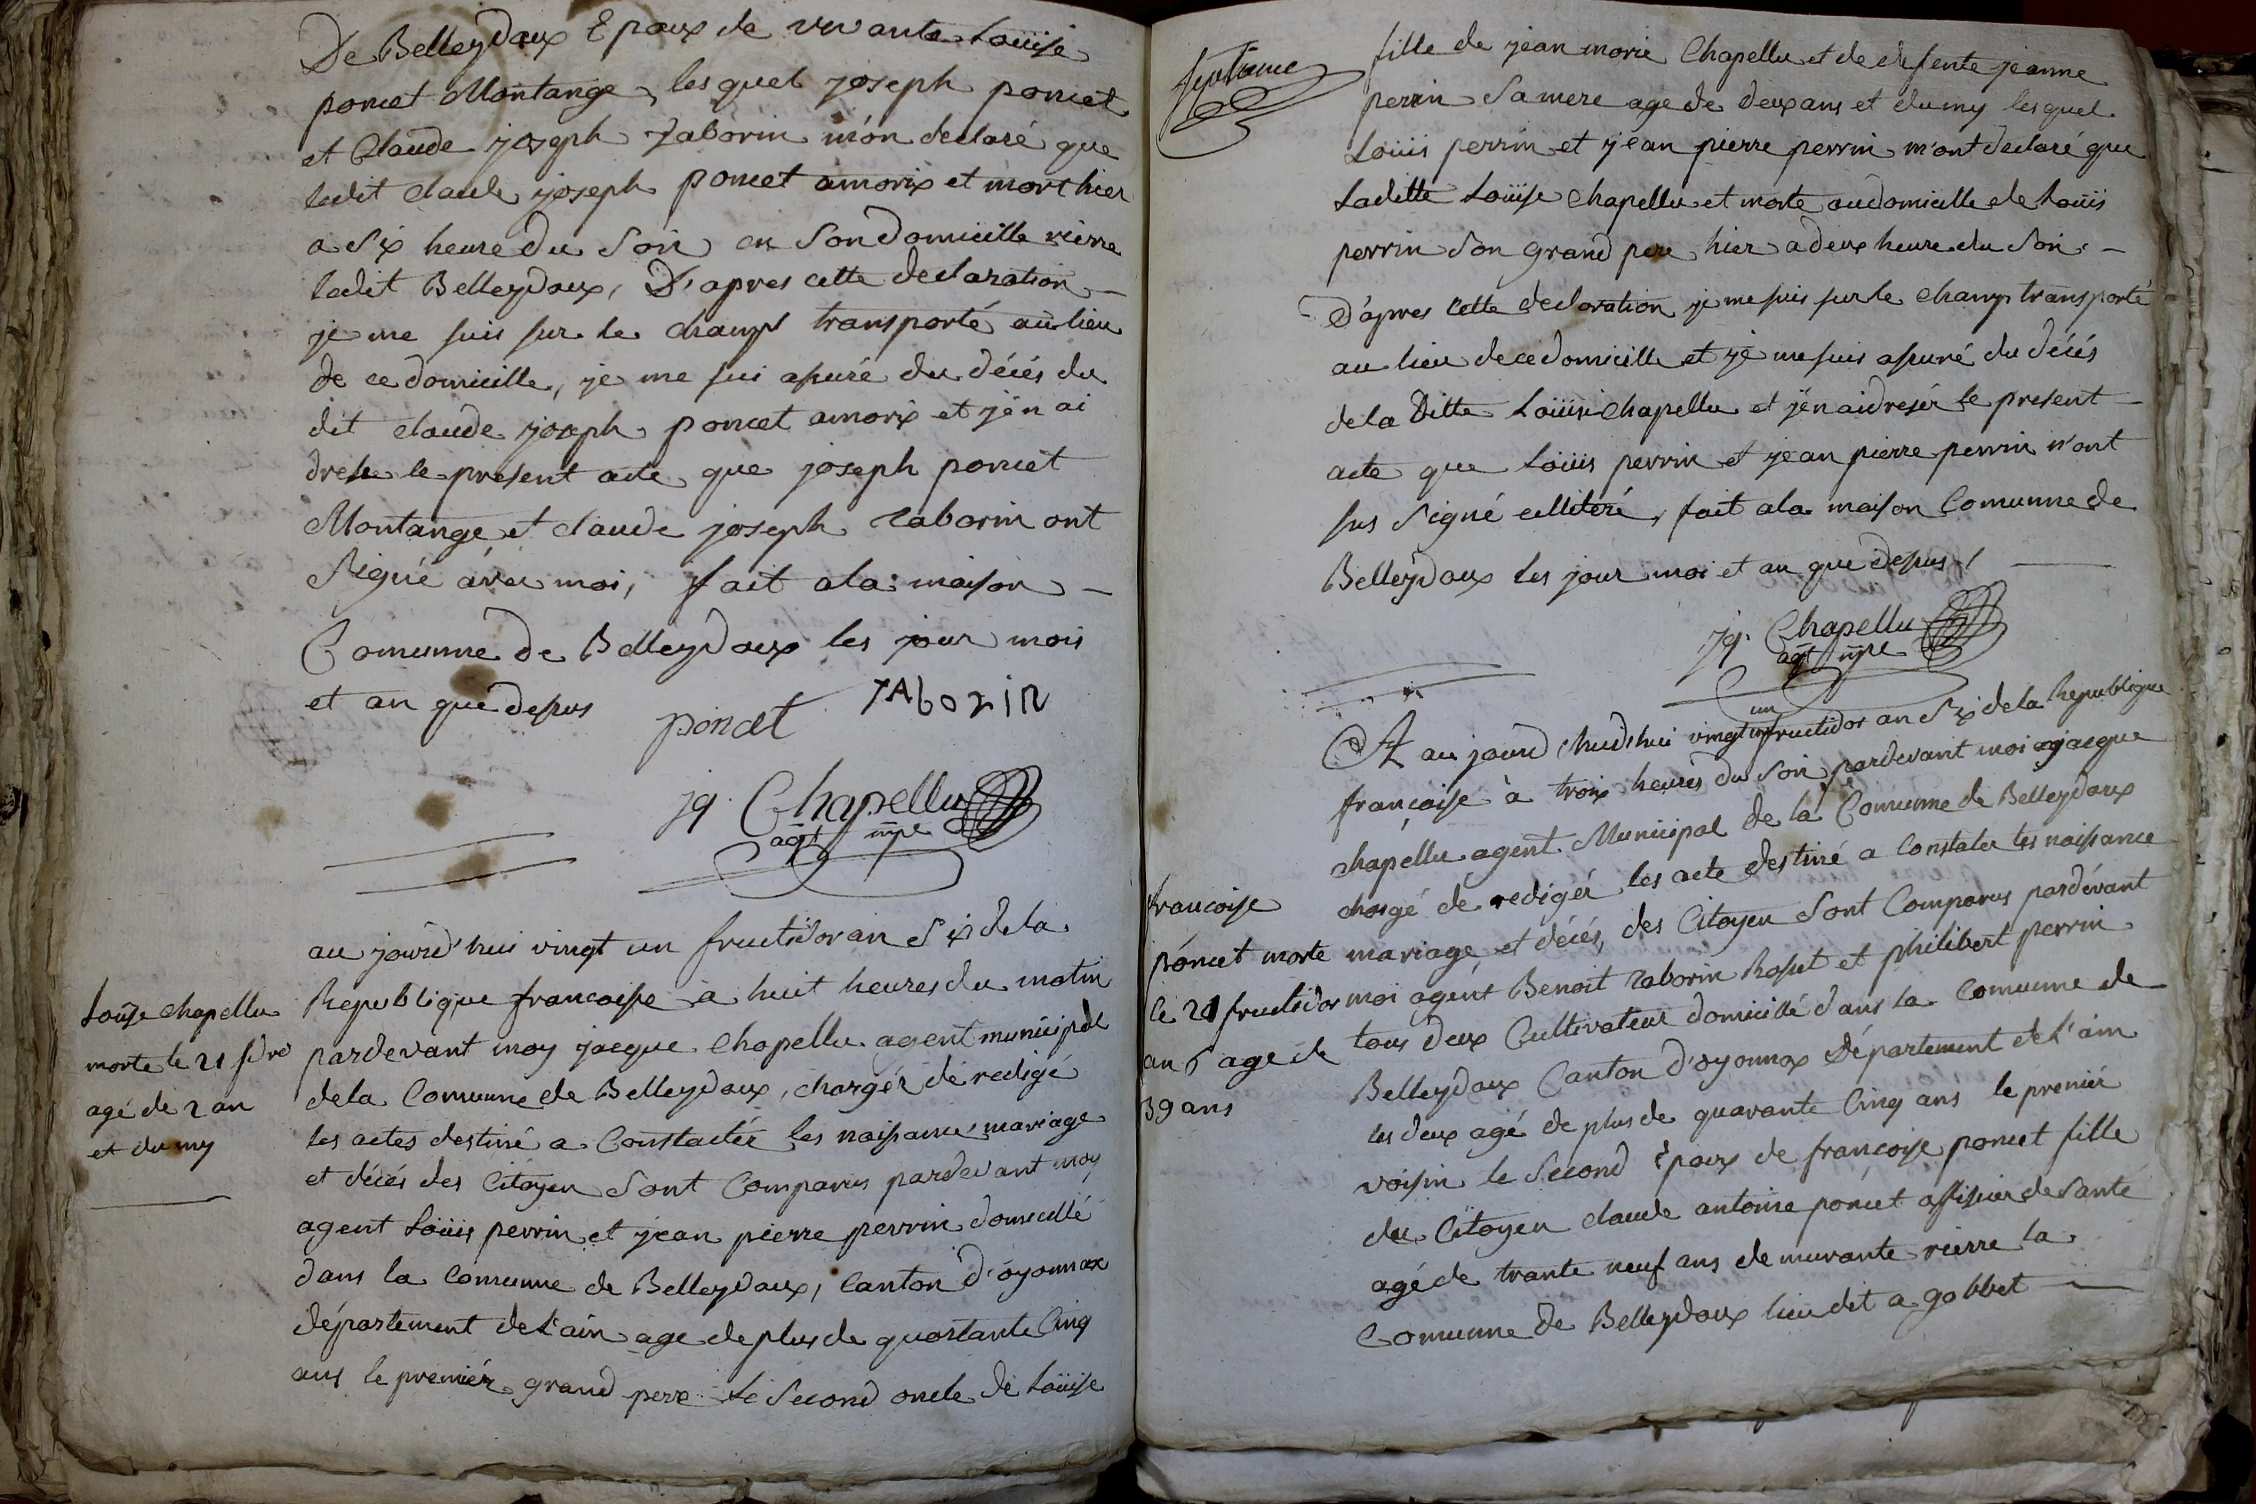 De Belleydoux Epoux de vivante Louïse
poncet Montange, lesquel joseph poncet
et Claude joseph Taborin m'on declaré que
ledit claude joseph poncet amorix et mort hier
a Six heure du Soir en Son domicille rierre
ledit Belleydoux, D'apres cette declaration
je me suis sur le champs transporté au lieu
de ce domicille, je me sui asuré du décés du
dit claude joseph poncet amorix et j'en ai
dresse le present acte que joseph poncet
Montange et claude joseph Taborin ont
Signé avec moi, fait a la maison
Comunne de Belleydoux les jour mois
et an que depus
poncet TAborin
jq. Chapellu
agt mpe
au jourd'hui vingt un fructidor an Six de la
Republique francoise à huit heures du matin
pardevant moy jacque Chapellu agent municipal
de la Comunne de Belleydoux, chargér de redigé
les actes destiné a Constactér les naisance mariage
et décés des Citoyen Sont Comparus pardevant moy
agent Loüis perrin et jean pierre perrin domicillé
dans la Comunne de Belleydoux, Canton d'oyonnax
département de l'ain age de plus de quartante Cinq
ans le premiér grand pere Le Second oncle de Loüise
Loüise Chapellu
morte le 21 fdre
agé de 2 an
et du my
fille de jean marie Chapellu et de defente jeanne
perrin Sa mere age de deux ans et dumy lesquel
Loüis perrin et jean pierre perrin m'ont declaré que
Laditte Loüise Chapellu et morte au domicille de Loüis
perrin Son grand pere hier a deux heure du Soir
D'apres cette declaration je me suis sur le champ transporté
au lieu de ce domicille et je me suis asuré du décés
de la Ditte Loüise Chapellu et j'en ai dresér le present
acte que Loüis perrin et jean pierre perrin n'ont
sus Signé illiteré, fait a la maison Comunne de
Belleydoux les jour moi et an que depus /
jq. Chapellu
agt mpe
un
A au jourd huidhui vingt fructidor an Six de la Republique
françoise à trois heures du Soir pardevant moi jacque
chapellu agent Municipal de la Comunne de Belleydoux
chargé de redigér les acte destiné a Constater les naissance
mariage et décés, des Citoyen Sont Comparus pardévant
moi agent Benoit Taborin Roset et philibert perrin
tous deux Cultivateur domicillé dans la Comunne de
Belleydoux Canton d'oyonnax Département de l'ain
les deux agé de plus de quarante Cinq ans le premiér
voisin le Second Epoux de francoise poncet fille
du Citoyen claude antoine poncet offisier de Santé
agé de trante neuf ans demurante rierre la
Comunne de Belleydoux lieu dit a gobbet
francoise
poncet morte
le 21 fructidor
an 6 age de
39 ans